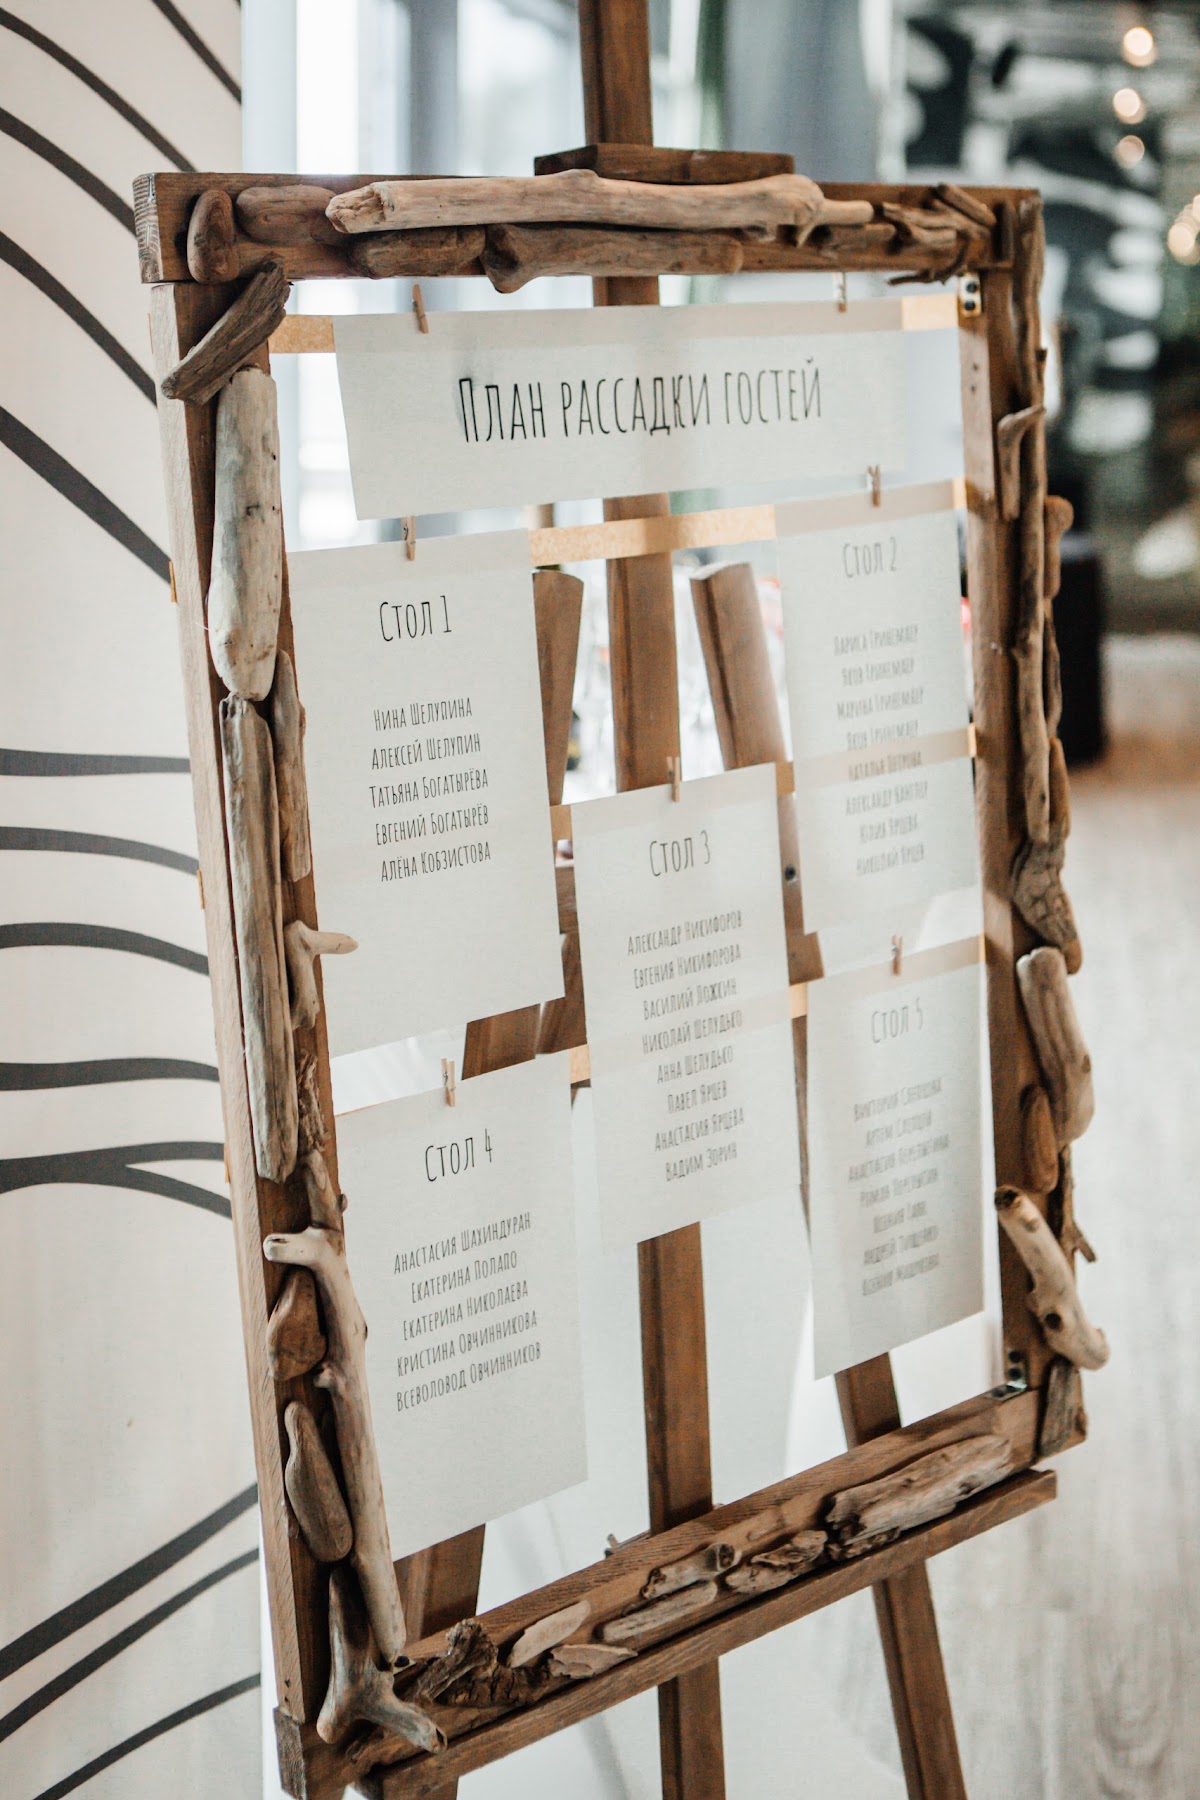 План рассадки гостей
Стол 1
Нина Шелупина
Алексей Шелупин
Татьяна Богатырёва
Евгений Богатырёв
Алёна Кобзистова
Стол 2
Лариса Гринемаер
Яков Гринемаер
Марина Гринемаер
Яков Гринемаер
Наталья Петрова
Александр Ванглер
Юлия Ярцева
Николай Ярцев
Стол 3
Александр Никифоров
Евгения Никифорова
Василий Ложкин
Николай Шелудько
Анна Шелудько
Павел Ярцев
Анастасия Ярцева
Вадим Зорин
Стол 4
Анастасия Шахиндуран
Екатерина Полапо
Екатерина Николаева
Кристина Овчинникова
Всеволовод Овчинников
Стол 5
Виктория
Артём
Анастасия
Роман
Ксения
Андрей Тищенко
Ксения